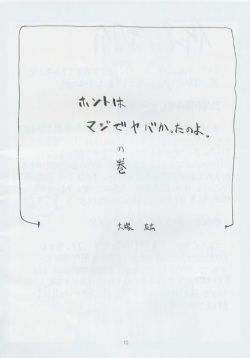 ホントは
マジでヤバかったのよ。
の
巻
大塚